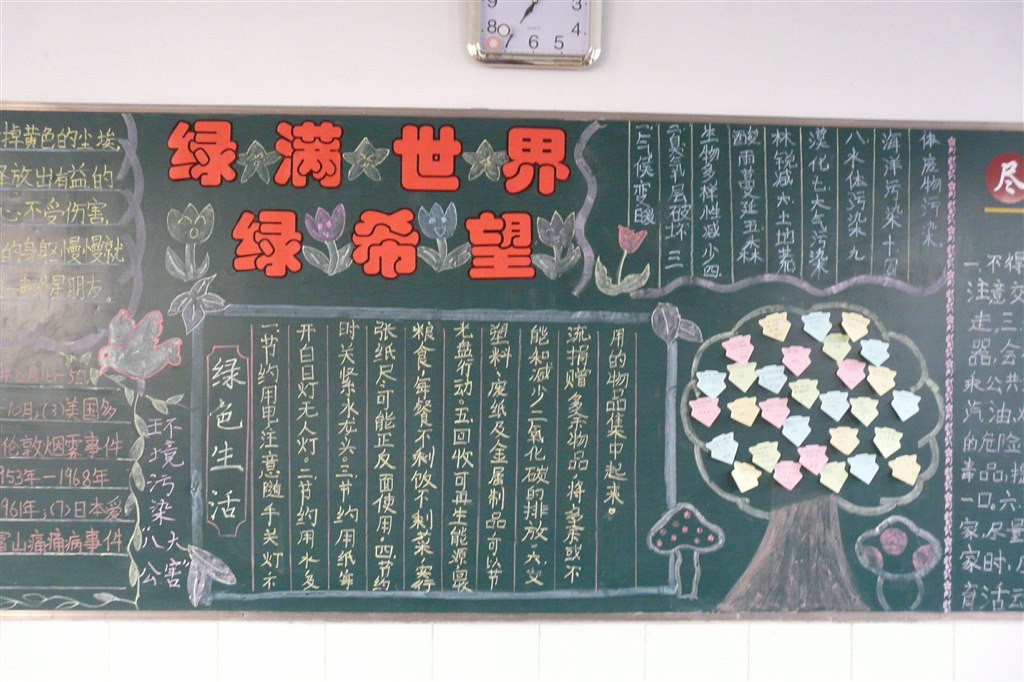 掉黄色的尘埃,
释放出有益的
心.不受伤害,
的身躯慢慢就
星朋友.
10月,(3)美国多
伦敦烟雾事件
953年—1968年
961年,(7)日本爱
富山痛痛病事件
环境污染
"八大公害"
绿满世界
绿希望
绿色生活
一节约用电注意随手关灯.不
开白日灯无人灯.二节约用水及
时关紧水龙头.三节约用纸每
张纸尽可能正反面使用.四节约
粮食.每餐不剩饭不剩菜.实行
光盘行动.五回收可再生能源
塑料.废纸及金属制品.可以节
能和减少二氧化碳的排放.六
流捐赠多余物品.将多余或不
用的物品集中起来。
一气候变暖
二臭氧层破坏 三
生物多样性减少四
酸雨蔓延五森
林锐减六土地荒
漠化七大气污染
八水体污染九
海洋污染十固
体废物污染
尽
一.不得
注意交
走,三,
器,会
乘公共
汽油.
的危险
毒品,
一口。六
家,尽量
家时,
育活动
9
8
7
6
5
4
3